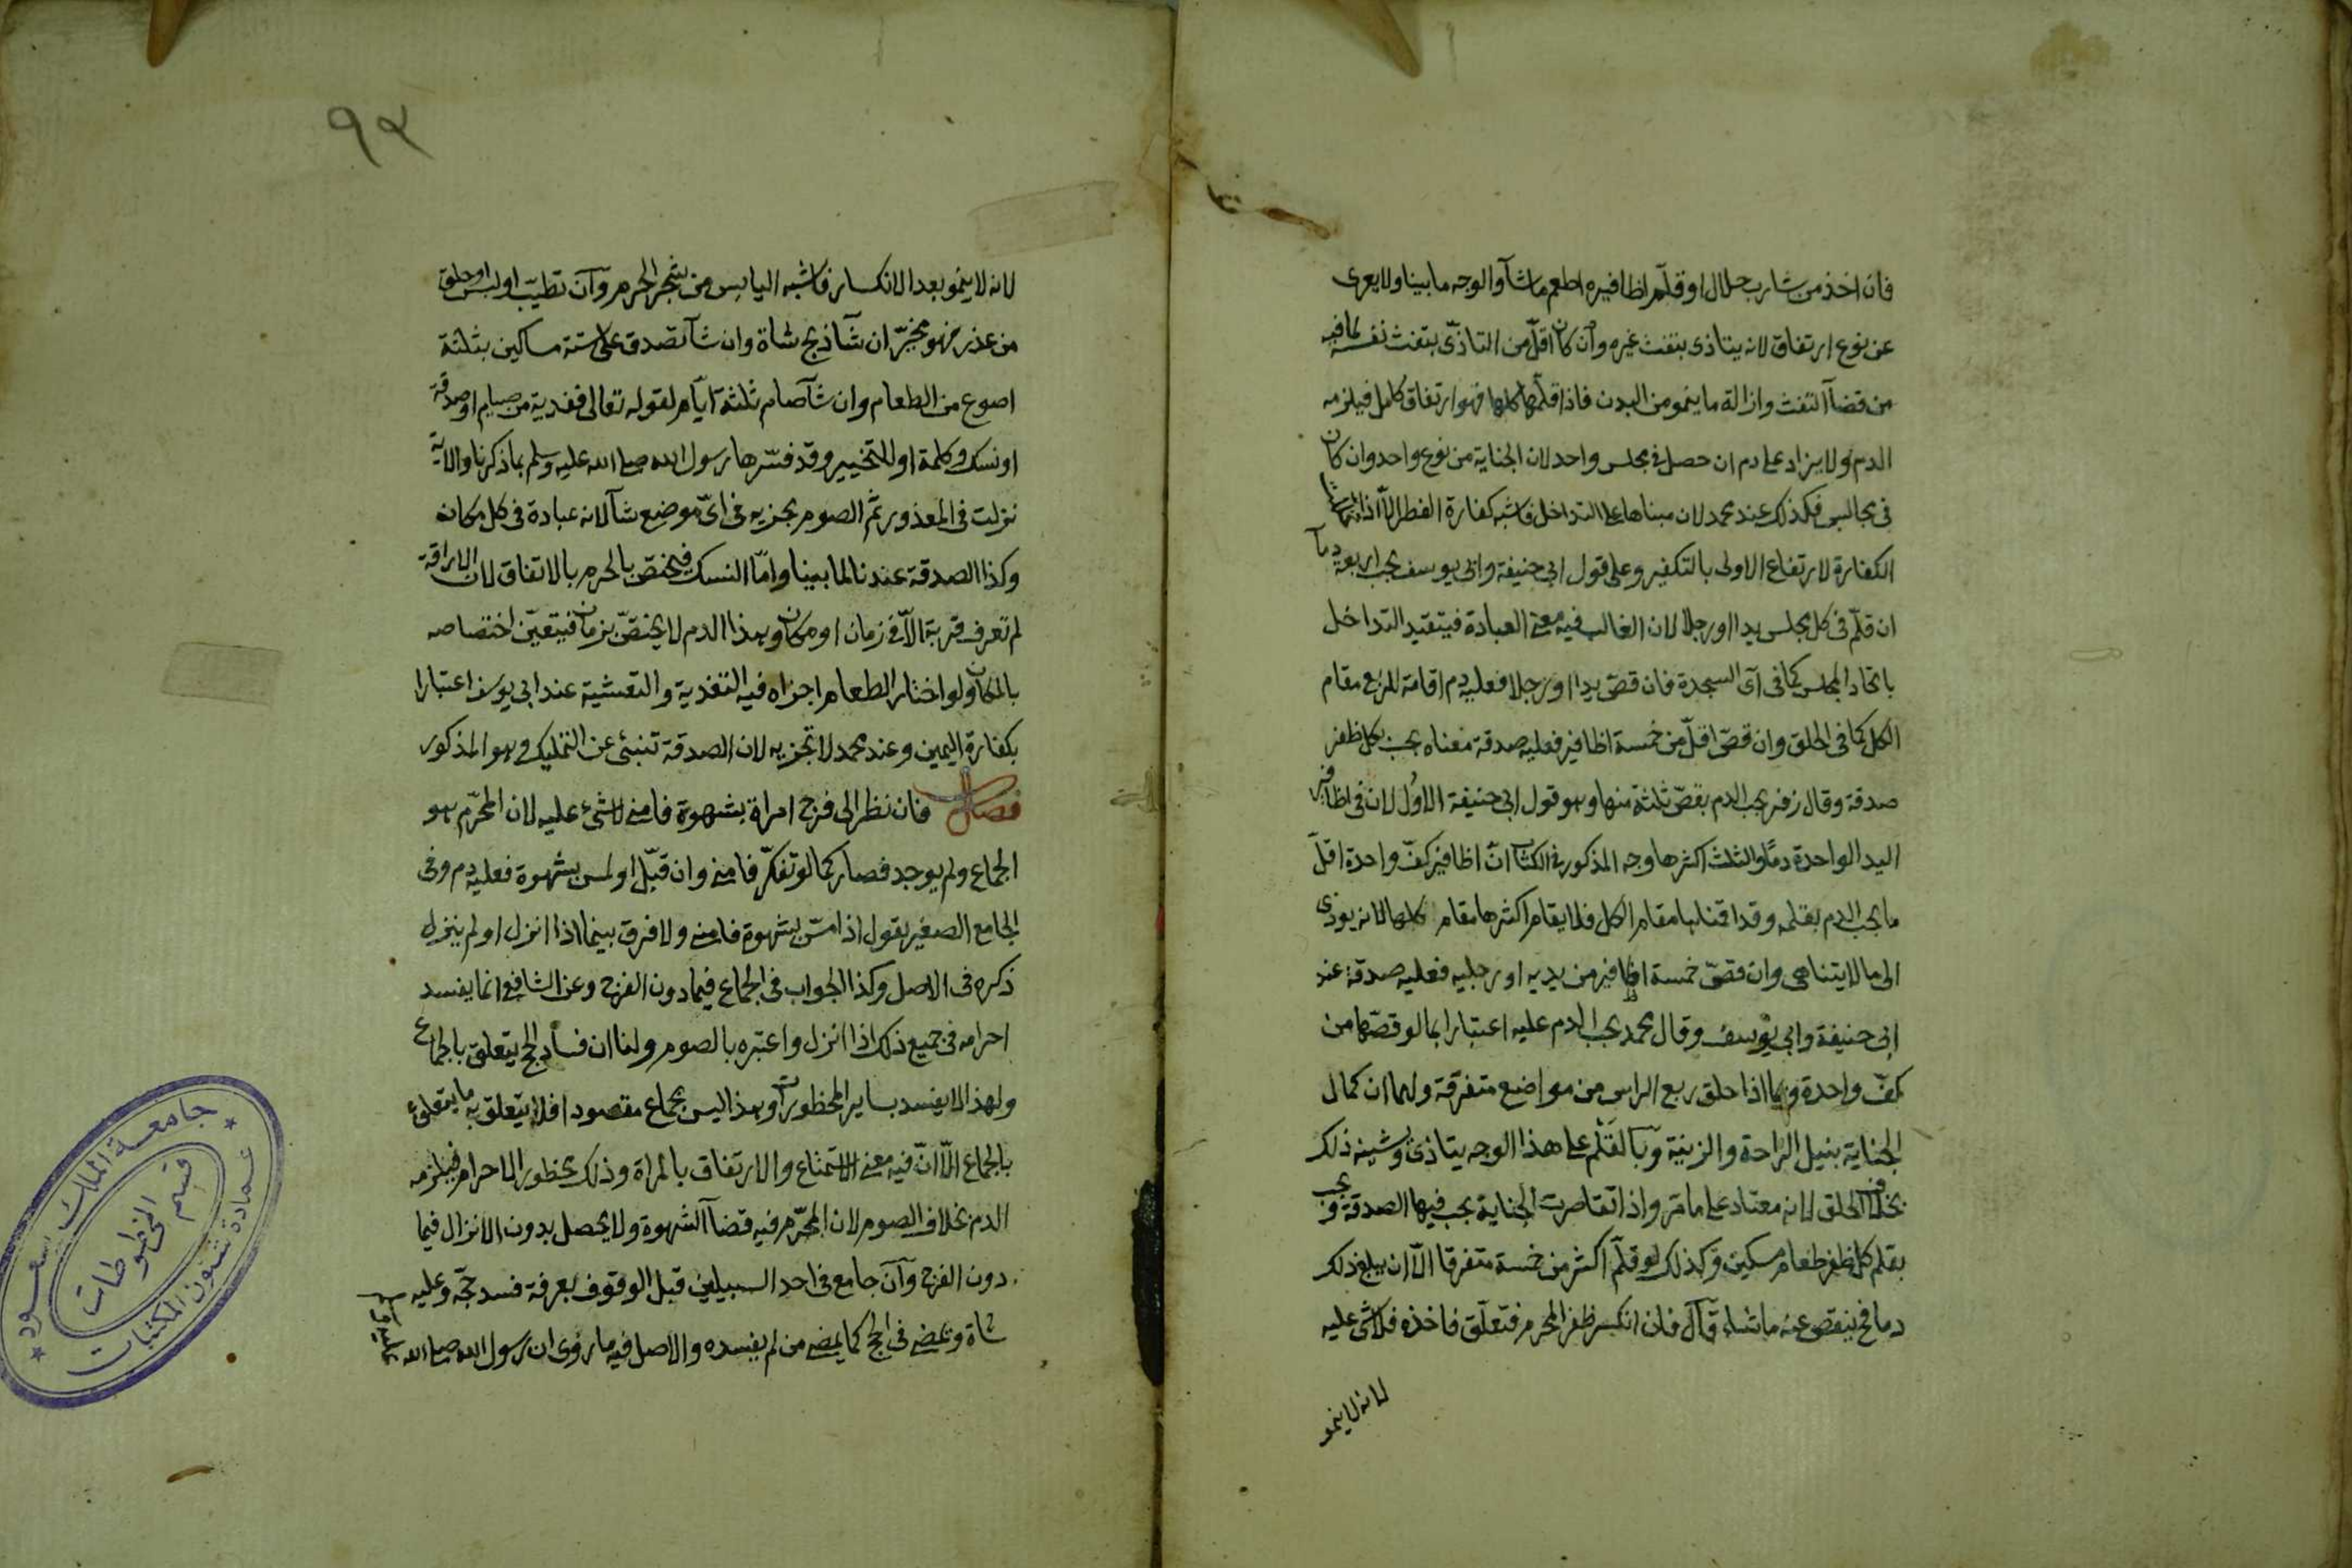 فان اخذ من شارب حلال او قلّم اظافيره اطعم ما شآ والوجه ما بينا ولا يعرى
عن نوع ارتفاق لانه يتاذى بتفث غيره وان كان اقلّ من التاذّى بتفث نفسه لما فيه
من قضآ التفث وازالة ما ينمو من البدن فاذا قلّمها كلها فهو ارتفاق كامل فيلزمه
الدم ولا يزاد على دم ان حصل فى مجلس واحد لان الجناية من نوع واحد وان كان
فى مجالس فكذلك عند محمد لان مبناها على التداخل فاشبه كفارة الفطر الّا اذا تخللت
الكفارة لارتفاع الاولى بالتكفير وعلى قول ابى حنيفة وابى يوسف يجب اربعة دمآ
ان قلّم فى كل مجلس يدا او رجلا لان الغالب فيه معنى العبادة فيتقيد التداخل
باتحاد المجلس كما فى آى السجدة فان قصّ يدا او رجلا فعليه دم اقامة للربع مقام
الكل كما فى الحلق وان قصّ اقلّ من خمسة اظافير فعليه صدقة معناه يجب بكل ظفر
صدقة وقال زفر يجب الدم بقصّ ثلثة منها وهو قول ابى حنيفة الاول لان فى اظافير
اليد الواحدة دمًا والثلث اكثرها وجه المذكور فى الكتاب انّ اظافير كفّ واحدة اقلّ
ما يجب الدم بقلمه وقد اقمناها مقام الكل فلا يقام اكثرها مقام كلها لانه يؤدى
الى ما لا يتناهى وان قصّ خمسة اظافير من يديه او رجليه فعليه صدقة عند
ابى حنيفة وابى يوسف وقال محمد يجب الدم عليه اعتبارا بما لو قصّها من
كفّ واحدة وبما اذا حلق ربع الراس من مواضع متفرقة ولهما ان كمال
الجناية بنيل الراحة والزينة وبالقلم على هذا الوجه يتاذى ويشينه ذلك
بخلاف الحلق لانه معتاد على ما مرّ واذا تقاصرت الجناية يجب فيها الصدقة فيجب
بقلم كل ظفر طعام مسكين وكذلك لو قلّم اكثر من خمسة متفرقا الّا ان يبلغ ذلك
دما فح ينقص عنه ما شاء قال فان انكسر ظفر المحرم فتعلّق فاخذه فلا شئ عليه
لانه لا ينمو
٩٢
لانه لا ينمو بعد الانكسار فاشبه اليابس من شجر الحرم وان تطيّب او لبس او حلق
من عذر فهو مخيّر ان شآ ذبح شاة وان شآ تصدق على ستة مساكين بثلثة
اصوع من الطعام وان شآ صام ثلثة ايّام لقوله تعالى ففدية من صيام او صدقة
او نسك وكلمة او للتخيير وقد فسّرها رسول الله صلى الله عليه وسلم بما ذكرنا والاية
نزلت فى المعذور ثم الصوم يجزيه فى اىّ موضع شآ لانه عبادة فى كل مكان
وكذا الصدقة عندنا لما بينا وامّا النسك فيختصّ بالحرم بالاتفاق لان الاراقة
لم تعرف قربة الّا فى زمان او مكان وهذا الدم لا يختصّ بزمان فيتعيّن اختصاصه
بالمكان ولو اختار الطعام اجزاه فيه التغدية والتعشية عند ابى يوسف اعتبارا
بكفارة اليمين وعند محمد لا تجزيه لان الصدقة تنبئ عن التمليك وهو المذكور
فصل فان نظر الى فرج امراة بشهوة فامنى لا شئ عليه لان المحرّم هو
الجماع ولم يوجد فصار كما لو تفكّر فامنى وان قبّل او لمس بشهوة فعليه دم وفى
الجامع الصغير يقول اذا مسّ بشهوة فامنى ولا فرق بينما اذا انزل او لم ينزل
ذكره فى الاصل وكذا الجواب فى الجماع فيما دون الفرج وعن الشافعى انما يفسد
احرامه فى جميع ذلك اذا انزل واعتبره بالصوم ولنا ان فساد الحج يتعلق بالجماع
ولهذا لا يفسد بساير المحظورات وهذا ليس بجماع مقصود فلا يتعلق به ما يتعلق
بالجماع الّا انّ فيه معنى الاستمتاع والارتفاق بالمراة وذلك محظور الاحرام فيلزمه
الدم بخلاف الصوم لان المحرّم فيه قضآ الشهوة ولا يحصل بدون الانزال فيما
دون الفرج وان جامع فى احد السبيلين قبل الوقوف بعرفة فسد حجّه وعليه
شاة ويمضى فى الحج كما يمضى من لم يفسده والاصل فيه ما روى ان رسول الله صلى الله
جامعة الملك سعود
عمادة شئون المكتبات
قسم المخطوطات